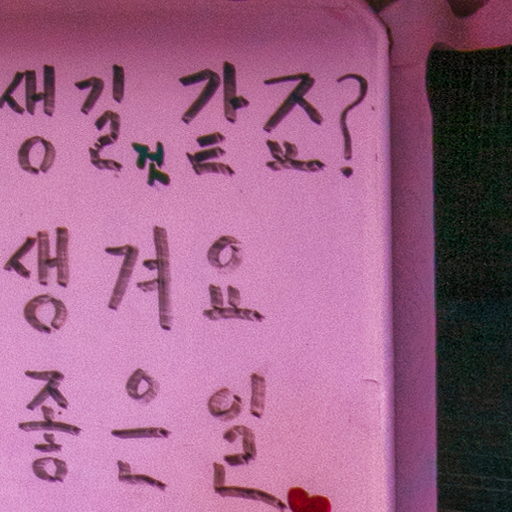 생길것 같죠?
생겨요
좋은일